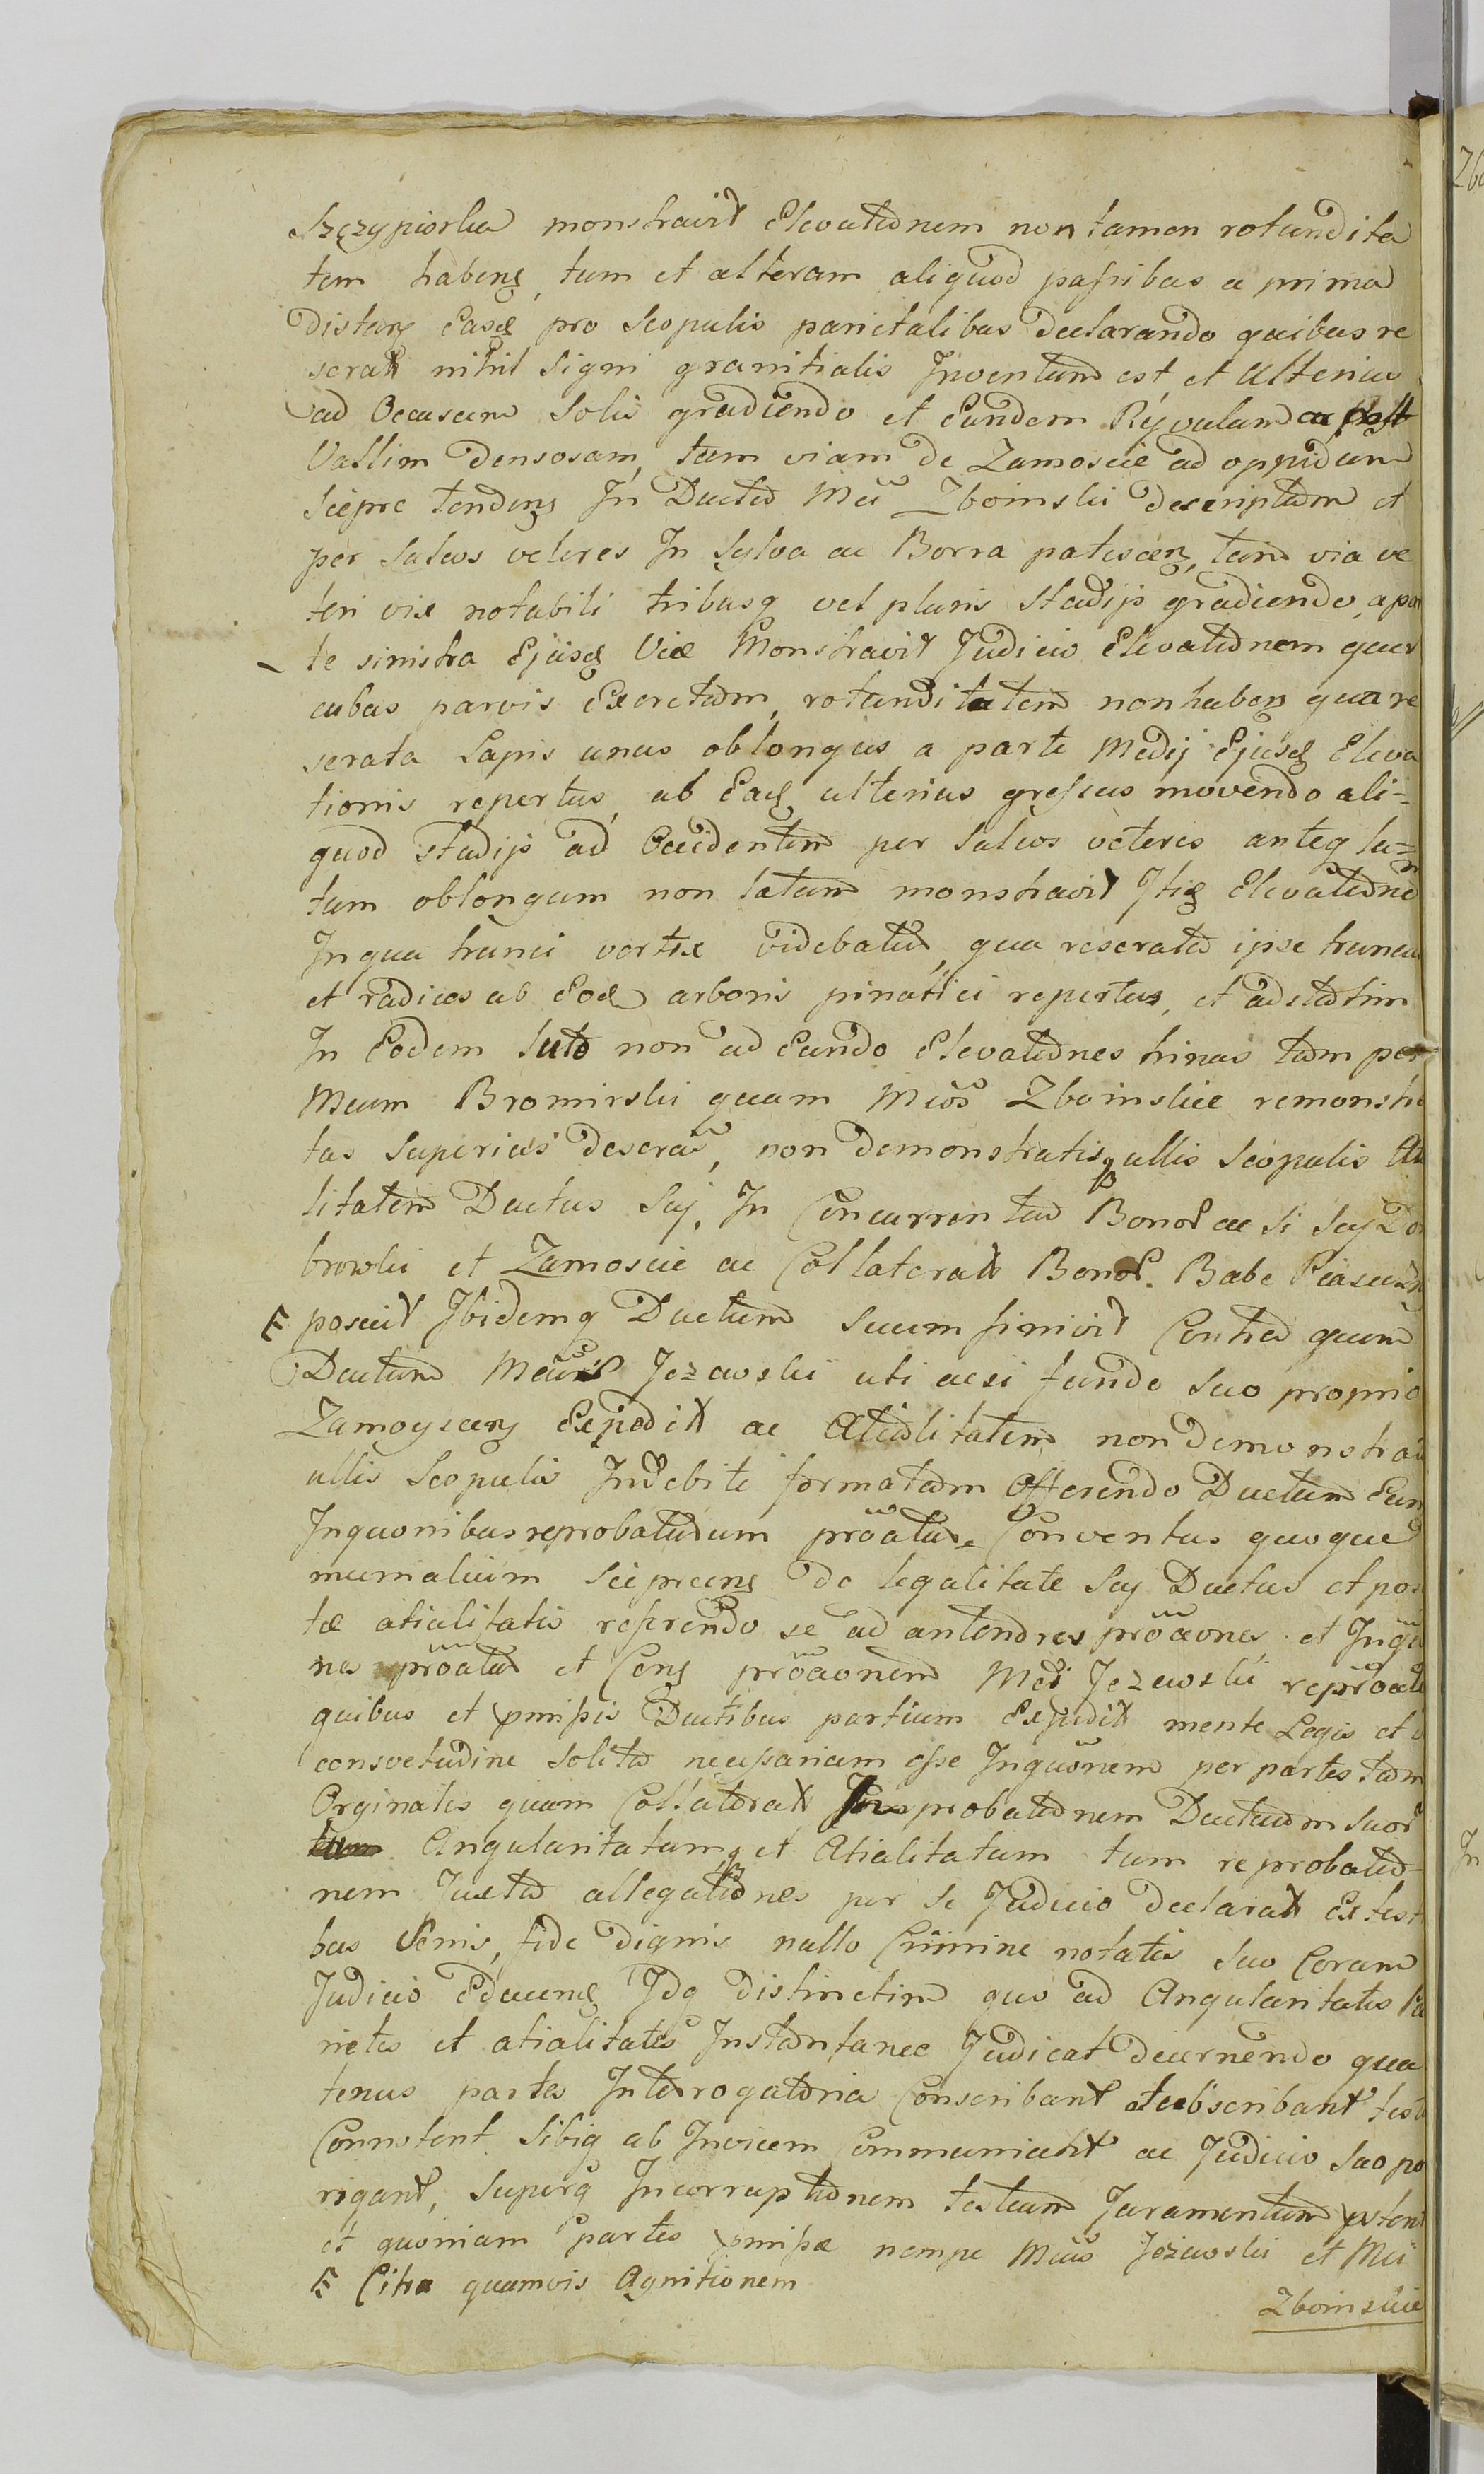 Szczypiorka monstravit Elevationem non tamen rotundita
tem habens, tum et alteram aliquod passibus a prima
distans Easd pro Scopulis parietalibus declarando quibus re
serat nihil Signi granitialis Inventum est et Ulterius
ad Occasum Solis gradiendo et Eundem Ryvulum a post
Vallim densosam, tum viam de Zamoscie ad oppidum
Sieprc tendens In Ductu Mci Zboinski descriptam et
per Salvos veteres In Sylva ac Borra patescen, tum via ve
teri vix notabili tribusq vel pluris Stadijs gradiendo, a par
te sinistra Ejusd Viæ Monstravit Judicio Elevationem quer
cubus parvis Excretam, rotunditatem non haben qua re
serata Lapis unus oblongus a parte Medij Ejusd Eleva
tionis repertus, ab Ead ulterius gressus movendo ali=
quod Stadijs ad Occidentem per Salvos veteres anteq lu=
tum oblongum non latum monstravit Itid Elevationem
In qua trunci vertex videbatur, qua reserata ipse truncus
et radices ab Eod arboris pinatici repertus, et adstatim
In Eodem luto non ad Eundo Elevationes trinas tam per
Mcum Bromirski quam Mcos Zboinskie remonstra
tas Superius descras, non demonstratisq ullis Scopulis A
litatem Ductus Sui, In Concurrentia Bonor ac si Sui Do
browki et Zamoscie ac Collaterali Bonor. Babe
poscuit Ibidemq Ductum Suum finivit Contra quem
Ductum Jezewski uti ac si fundo Suo proprio
Zamoyscen Expedit ac Atialitatem non demonstra
ullis Scopulis Indebite formatam Offerendo Ductum Eun
Inquonibus reprobaturum proatur. Conventus quoque
munialium Sieprcens de legalitate Sui Ductus et posi
tæ atialitatis referendo se ad anteriores proaones et Inqu
nes proatur et Cons proaonem Mci Jezewski reproat
quibus et pmissis Ductibus partium Expedit mente Legis et
consvetudine Solita necessariam esse Inquonem per partes tam
Orginales quam Collateral In probationem Ductuum Suor
Angularitatumq et Atialitatum tum reprobatio
nem Juxta allegationes per Se Judicio declarat Ex testi
bus Senis, fide dignis nullo Crimine notatis Suo Coram
Judicio Educens Idq distinctim quo ad Angularitates Pa
rietes et atialitates Instantanee Judicat decernendo qua
tenus partes Interrogatoria Conscribant Subscribant
Connotent Sibiq ab Invicem Communicent ac Judicio Suo po
rigant, Superq Incorruptionem testium Juramentum
et quoniam partes pmissæ nempe Mcus Jezewski et Mci
Citra quamvis Agnitionem
Zboinskie